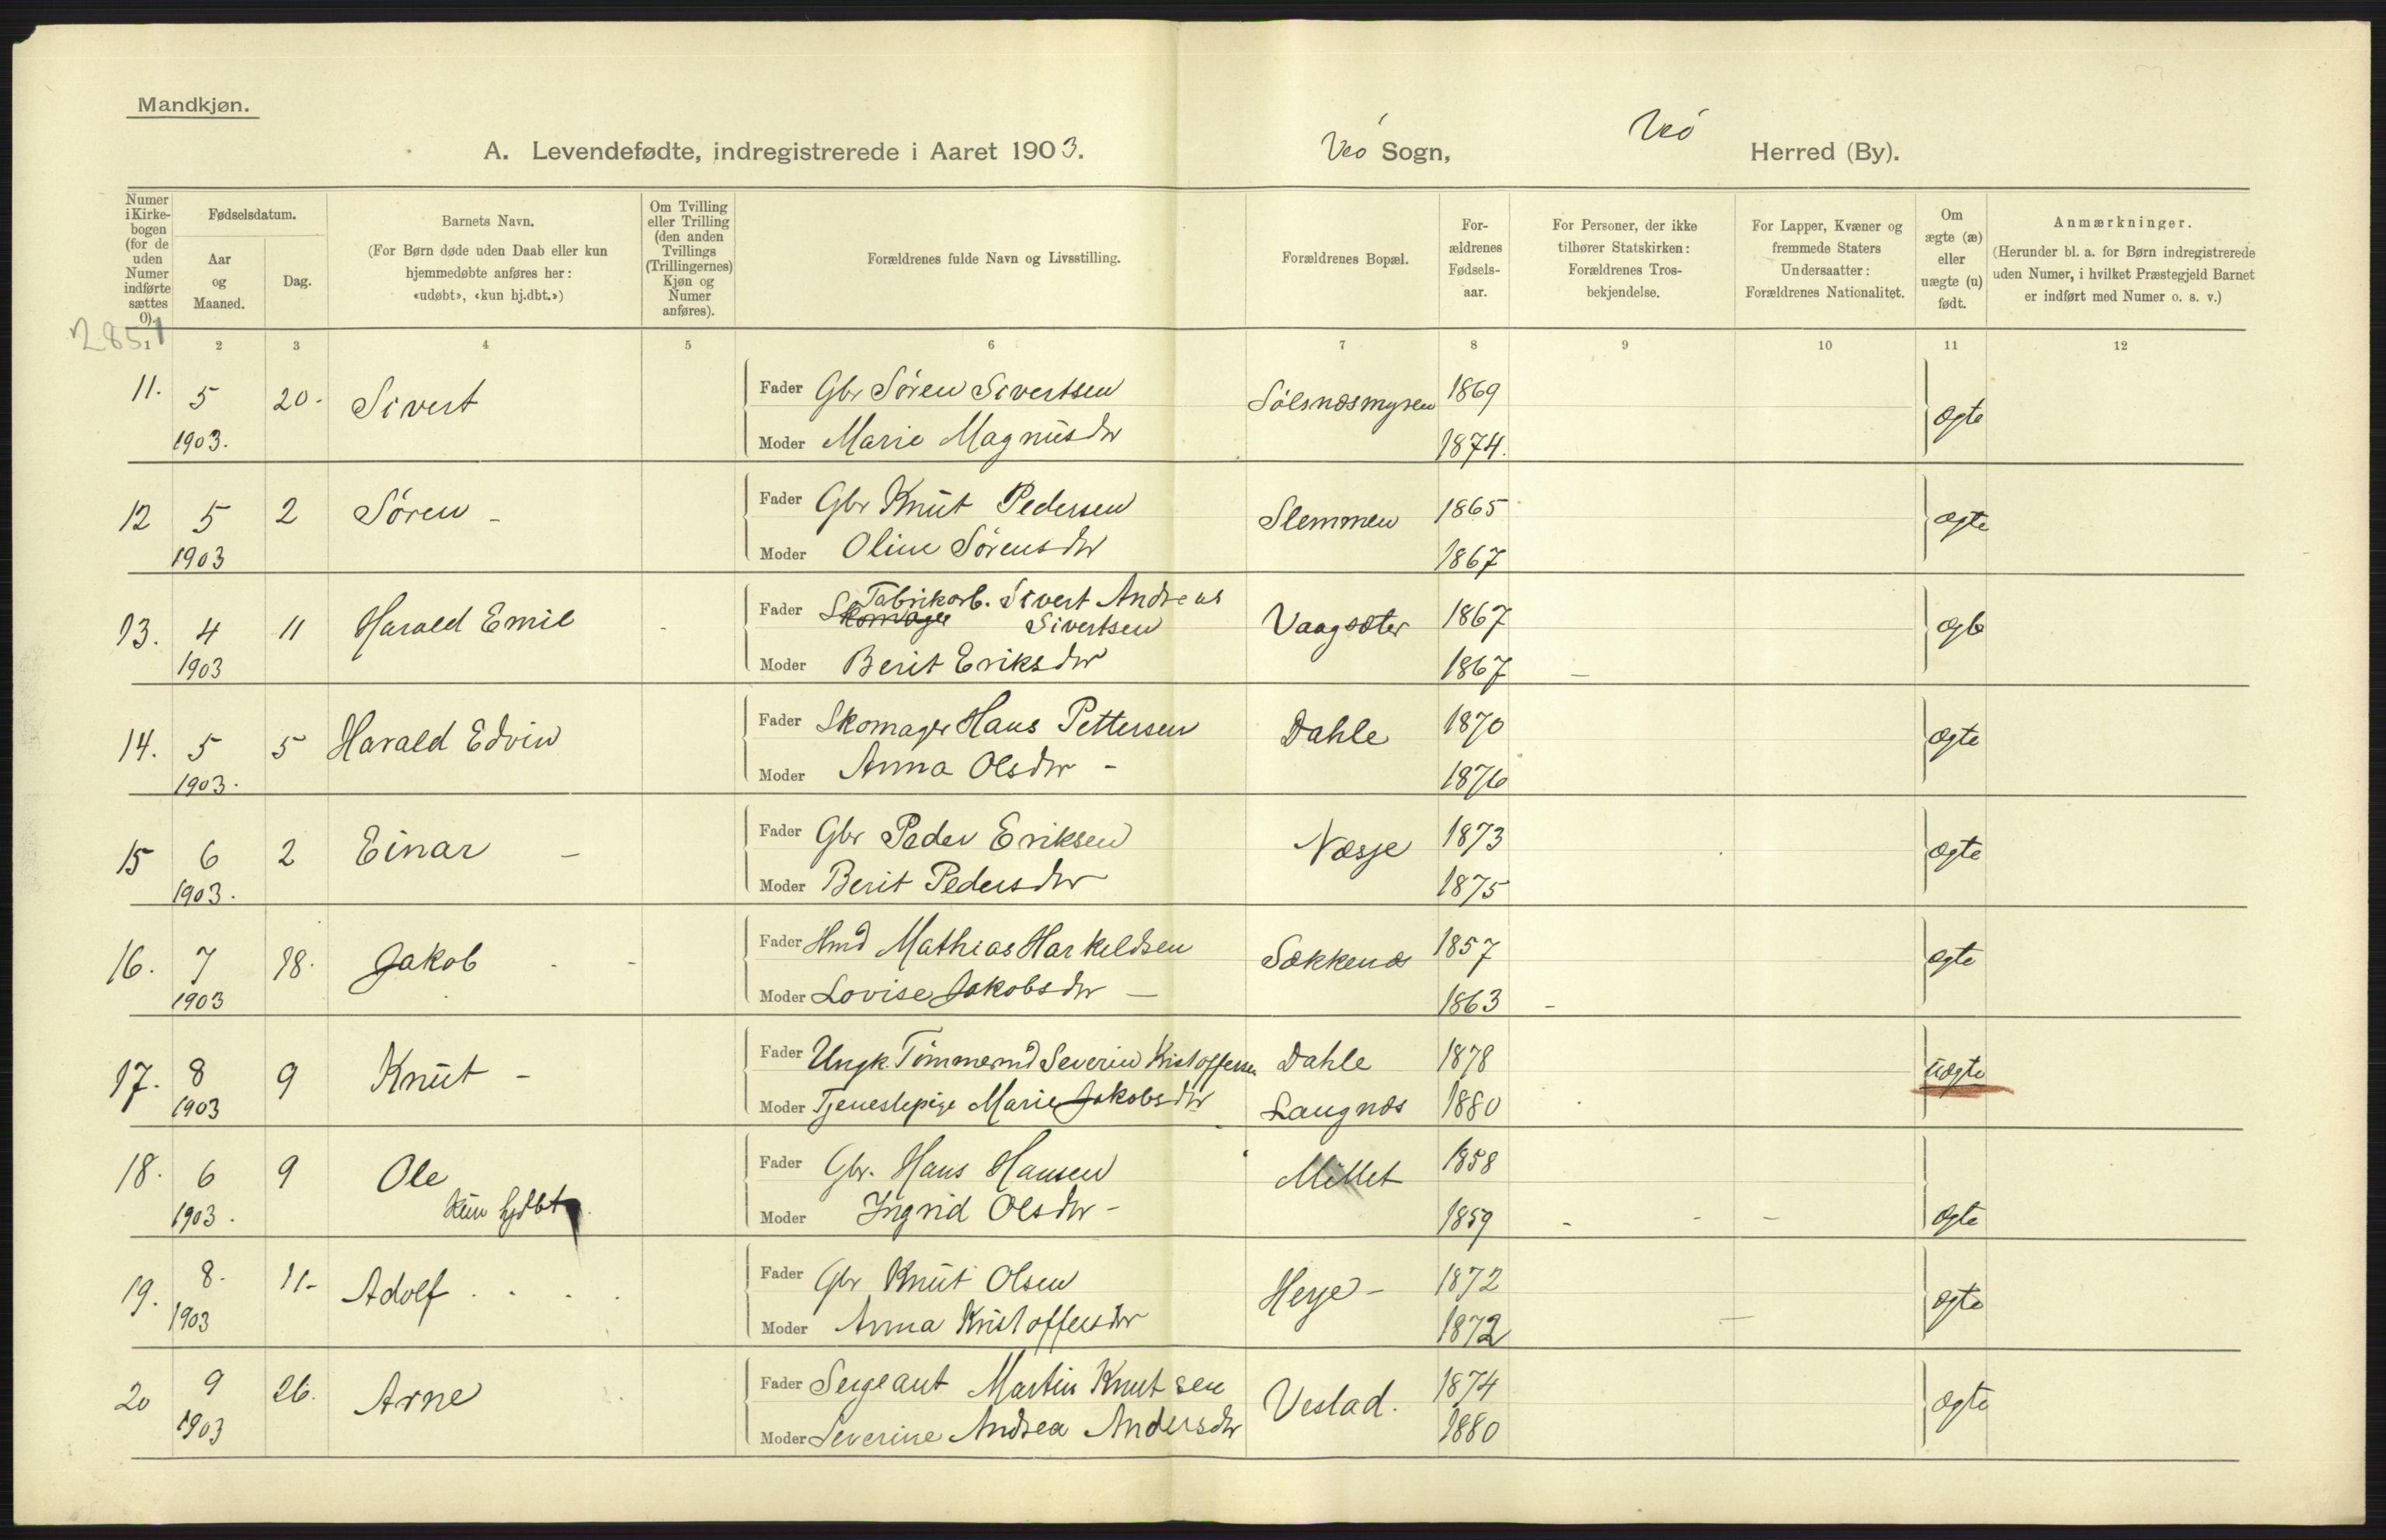 Mandkjøn.
A. Levendefødte, indregistrerede i Aaret 1903. Veö Sogn, Veö Herred (By).
Numer i Kirkebogen (for de uden Numer indførte sættes 0).
Fødselsdatum.
Aar og Maaned.
Dag.
Barnets Navn.
(For Børn døde uden Daab eller kun
hjemmedøbte anføres her:
«udøbt», «kun hj.dbt.»)
Om Tvilling
eller Trilling
(den anden
Tvillings
(Trillingernes)
Kjøn og
Numer
anføres).
Forældrenes fulde Navn og Livsstilling.
Forældrenes Bopæl.
For-
ældrenes
Fødsels-
aar.
For Personer, der ikke
tilhører Statskirken:
Forældrenes Tros-
bekjendelse.
For Lapper, Kvæner og
fremmede Staters
Undersaatter:
Forældrenes Nationalitet.
Om
ægte (æ)
eller
uægte (u)
født.
Anmærkninger.
(Herunder bl. a. for Børn indregistrerede
uden Numer, i hvilket Præstegjeld Barnet
er indført med Numer o. s. v.)
2851
1 2 3 4 5 6 7 8 9 10 11 12
11. 5 20. Sivert Fader Gbr Sören Sivertsen Sölsnæsmyren 1869 ægte
1903. Moder Marie Magnusdtr 1874.
12 5 2 Sören - Fader Gbr Knut Pedersen Slemmen 1865 ægte
1903 Moder Oline Sörensdtr 1867
13. 4 11 Harald Emil - Fader Skomager Fabrikarb. Sivert Andreas Sivertsen Vaagsæter 1867 ægte
1903 Moder Berit Eriksdtr 1867 -
14. 5 5 Harald Edvin Fader Skomager Hans Pettersen Dahle 1870 ægte
1903. Moder Anna Olsdtr - 1876
15 6 2 Einar - Fader Gbr Peder Eriksen Næsje 1873 ægte
1903. Moder Berit Pedersdtr 1875
16. 7 18. Jakob - - Fader Hmd Mathias Harkeldsen Sækkenæs 1857 ægte
1903 Moder Lovise Jakobsdtr - 1863 -
17. 8 9 Knut - Fader Ungk. Tömmermd Severin Kristoffersen Dahle 1878 uægte
1903 Moder Tjenestepige Marie Jakobsdtr Langnæs 1880
18. 6 9 Ole Fader Gbr. Hans Hansen Millet 1858
kun hjdbt.
1903. Moder Ingrid Olsdtr - 1859 - - - ægte
19. 8. 11- Adolf Fader Gbr Knut Olsen Herje - 1872 ægte
1903 Moder Anna Kristoffersdtr 1872 -
20 9 26. Arne Fader Sergeant Martin Knutsen Vestad. 1874 ægte
1903 Moder Severine Andrea Andersdtr 1880